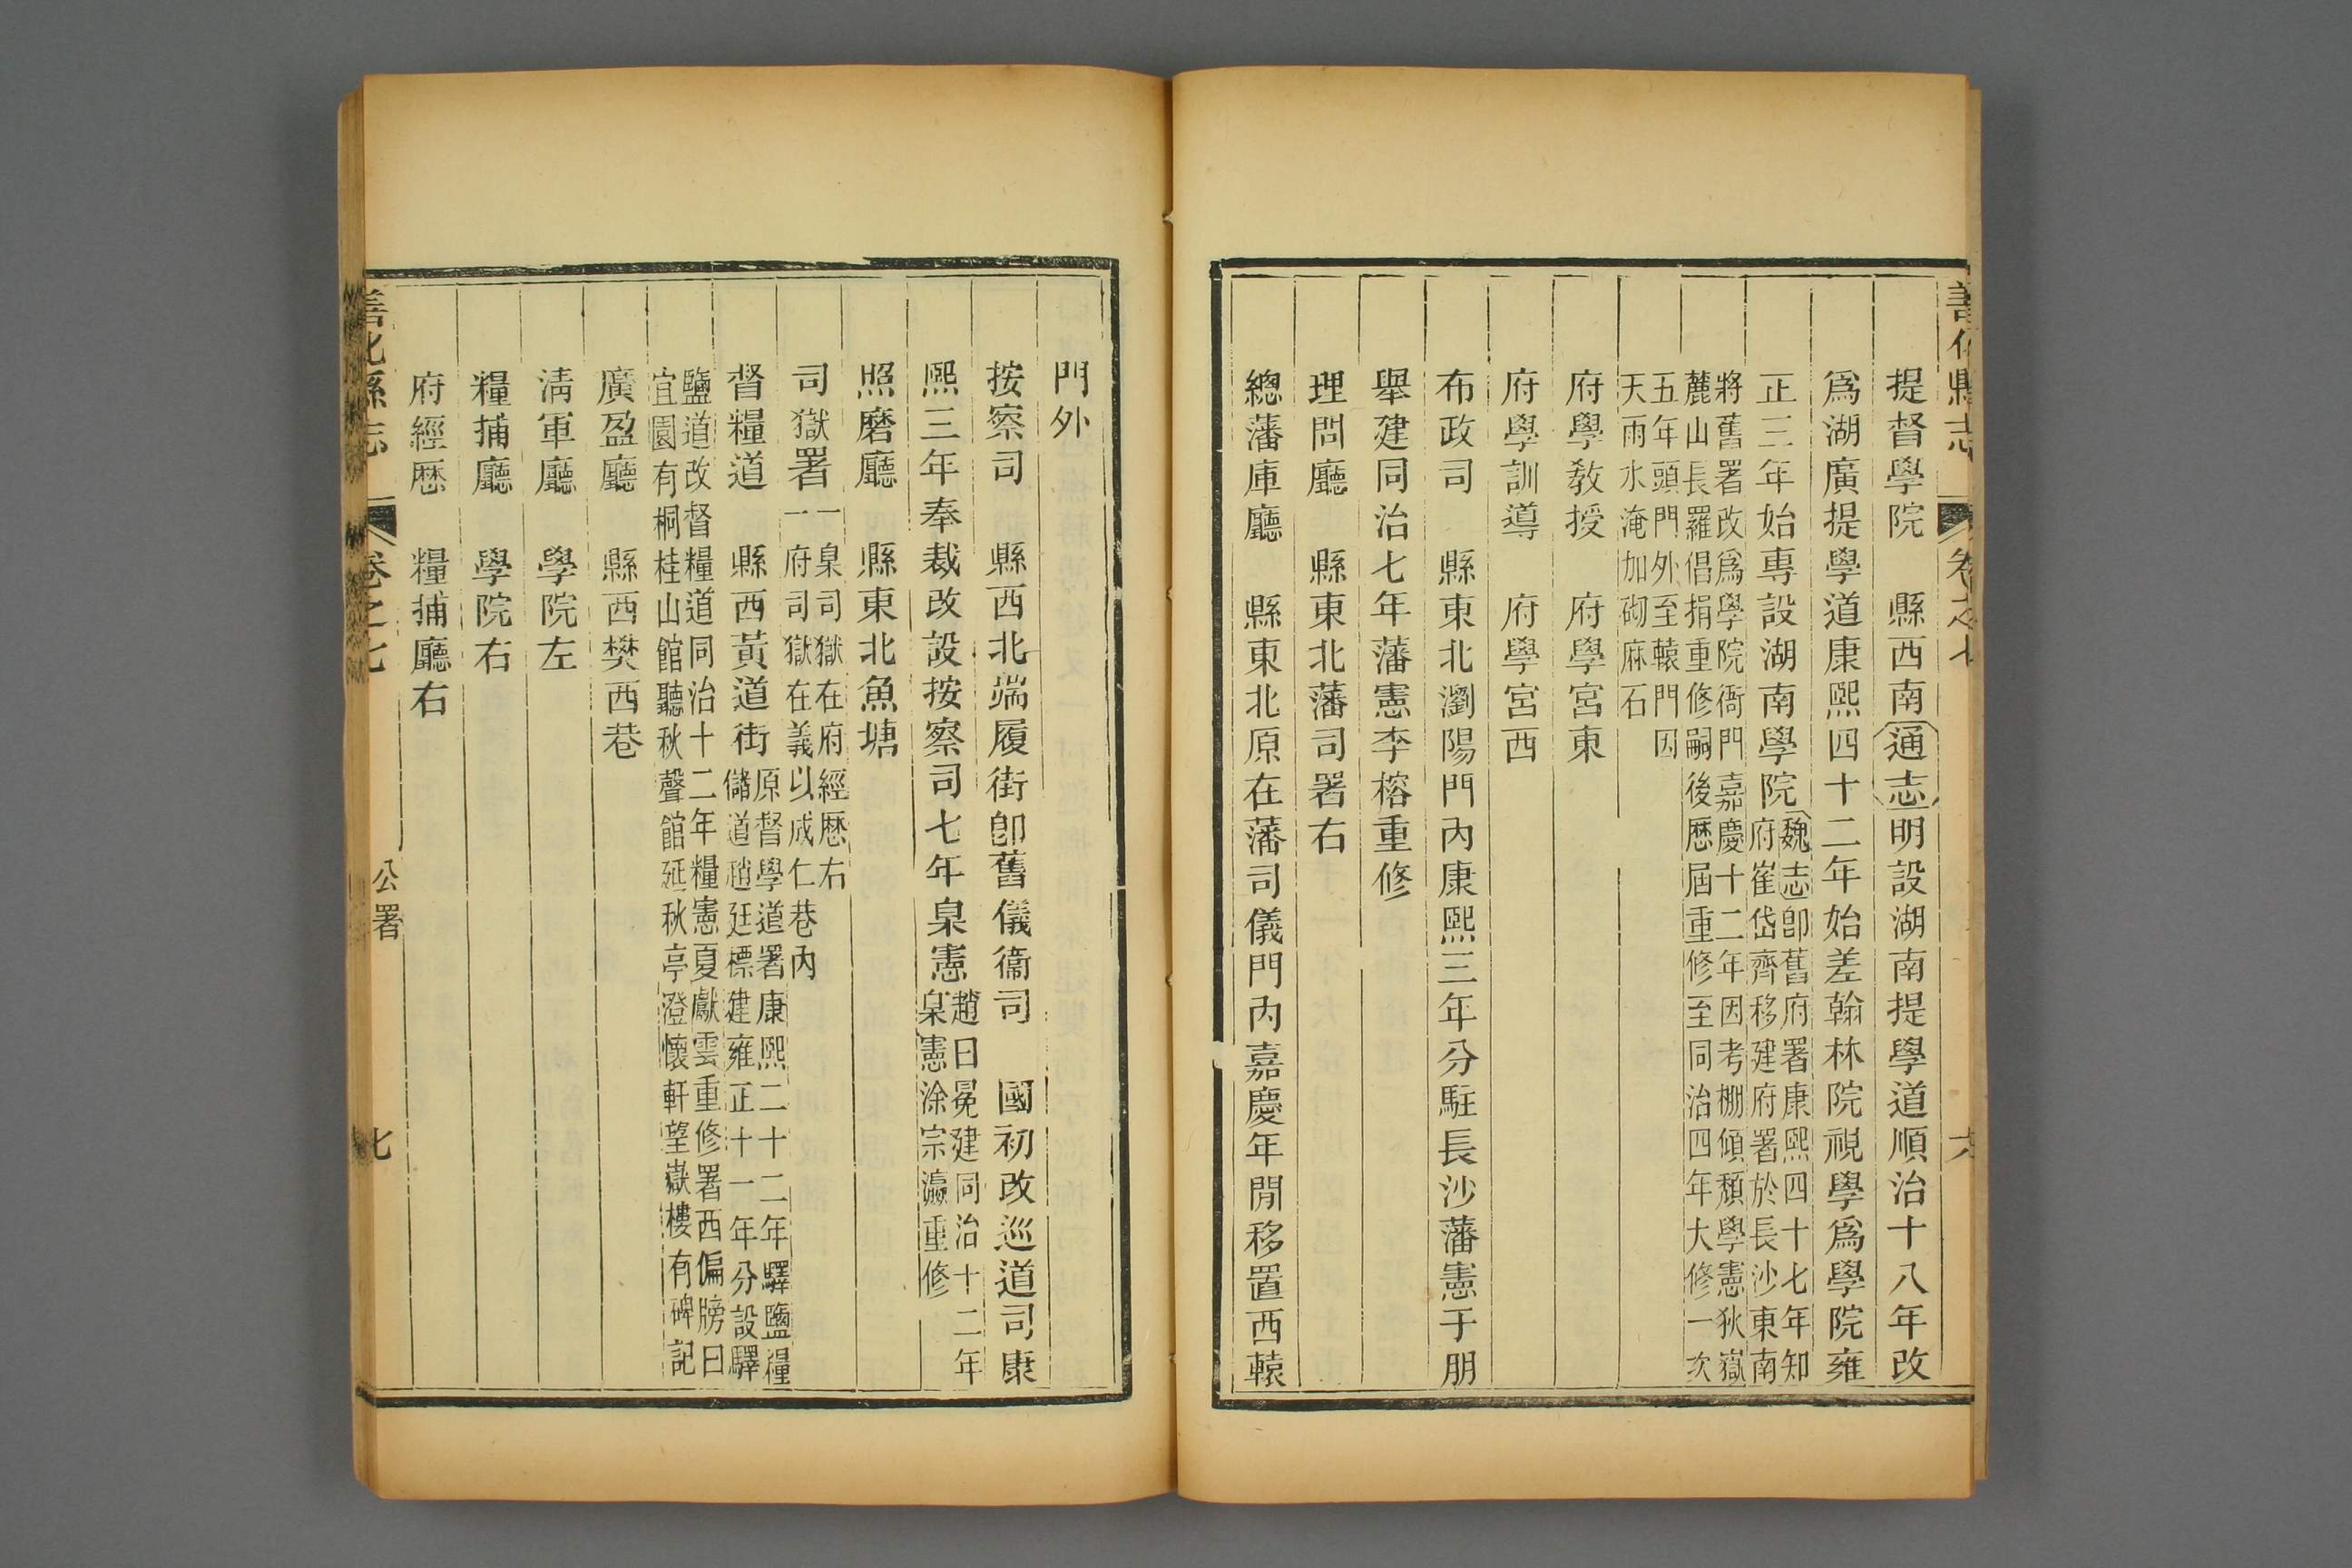 善化縣志 卷之七 六
提督學院 縣西南通志明設湖南提學道順治十八年改
爲湖廣提學道康熙四十二年始差翰林院視學爲學院雍
正三年始專設湖南學院魏志卽舊府署康熙四十七年知
府崔岱齊移建府署於長沙東南
將舊署改爲學院衙門嘉慶十二年因考棚傾頹學憲狄嶽
麓山長羅倡捐重修嗣後歷屆重修至同治四年大修一次
五年頭門外至轅門因
天雨水淹加砌麻石
府學教授 府學宮東
府學訓導 府學宮西
布政司 縣東北瀏陽門內康熙三年分駐長沙藩憲于朋
舉建同治七年藩憲李榕重修
理問廳 縣東北藩司署右
總藩庫廳 縣東北原在藩司儀門內嘉慶年閒移置西轅
門外
按察司 縣西北端履街卽舊儀衞司 國初改巡道司康
熙三年奉裁改設按察司七年臬憲趙曰冕建同治十二年
臬憲涂宗瀛重修
照磨廳 縣東北魚塘
司獄署一臬司獄在府經歷右
一府司獄在義以成仁巷內
督糧道 縣西黃道街原督學道署康熙二十二年驛鹽糧
儲道趙廷標建雍正十一年分設驛
鹽道改督糧道同治十二年糧憲夏獻雲重修署西偏牓曰
宜園有桐桂山館聽秋聲館延秋亭澄懷軒望嶽樓有碑記
廣盈廳 縣西樊西巷
淸軍廳 學院左
糧捕廳 學院右
府經歷 糧捕廳右
善化縣志 卷之七 公署 七